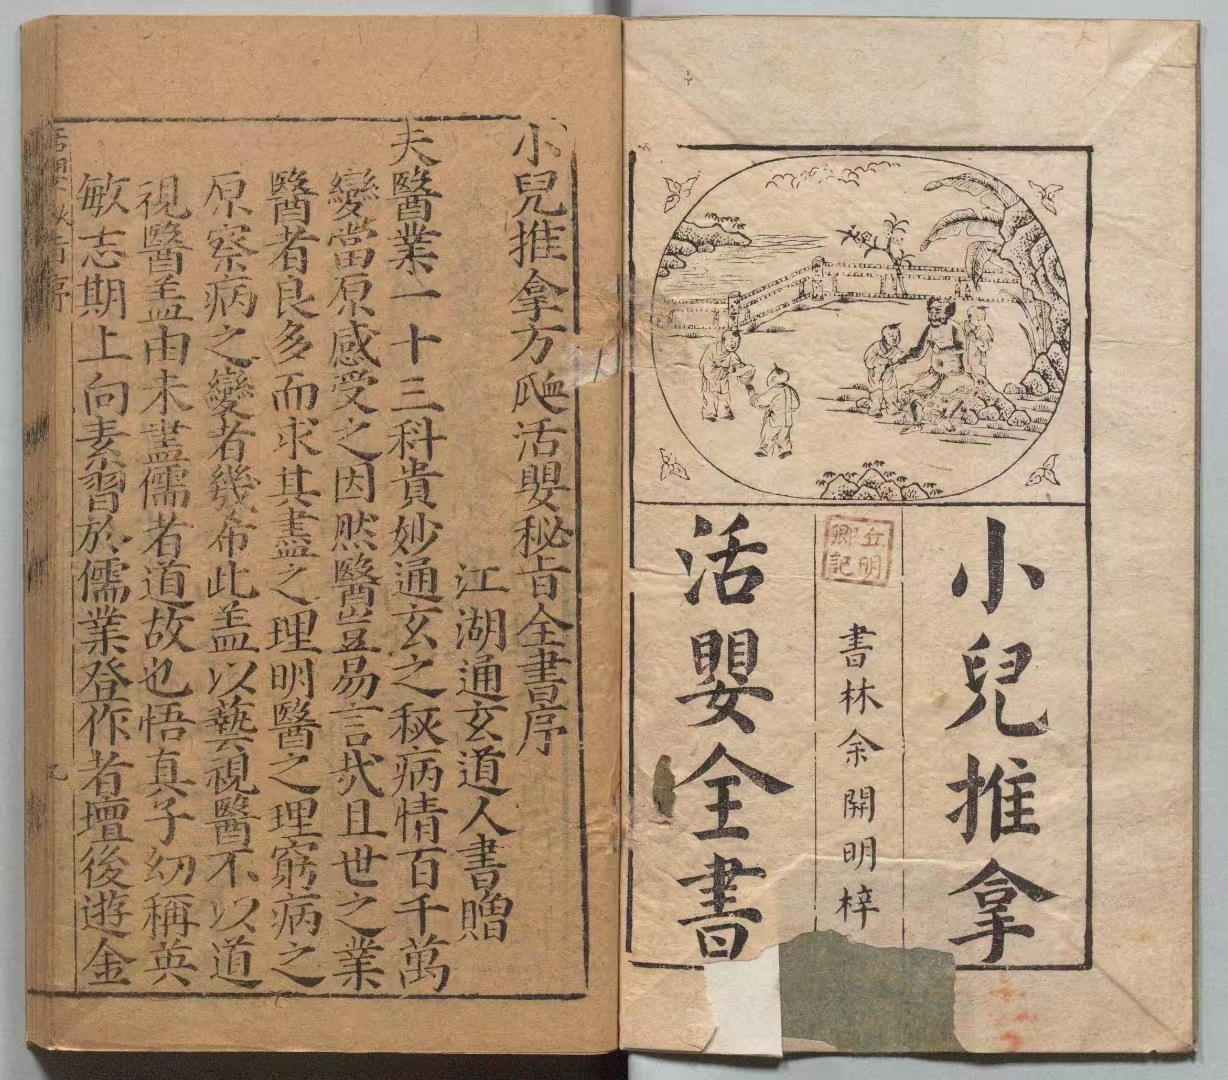 小兒推拿
丘明
卿記
書林余開明梓
活嬰全書
小兒推拿方脉活嬰秘旨全書序
江湖通玄道人書贈
夫醫業一十三科貴妙通玄之秘病情百千萬
變當原感受之因然醫豈易言哉且世之業
醫者良多而求其盡之理明醫之理窮病之
原察病之變者幾希此盖以藝視醫不以道
視醫盖由未盡儒者道故也悟真子幼稱英
敏志期上向素習於儒業登作者壇後遊金